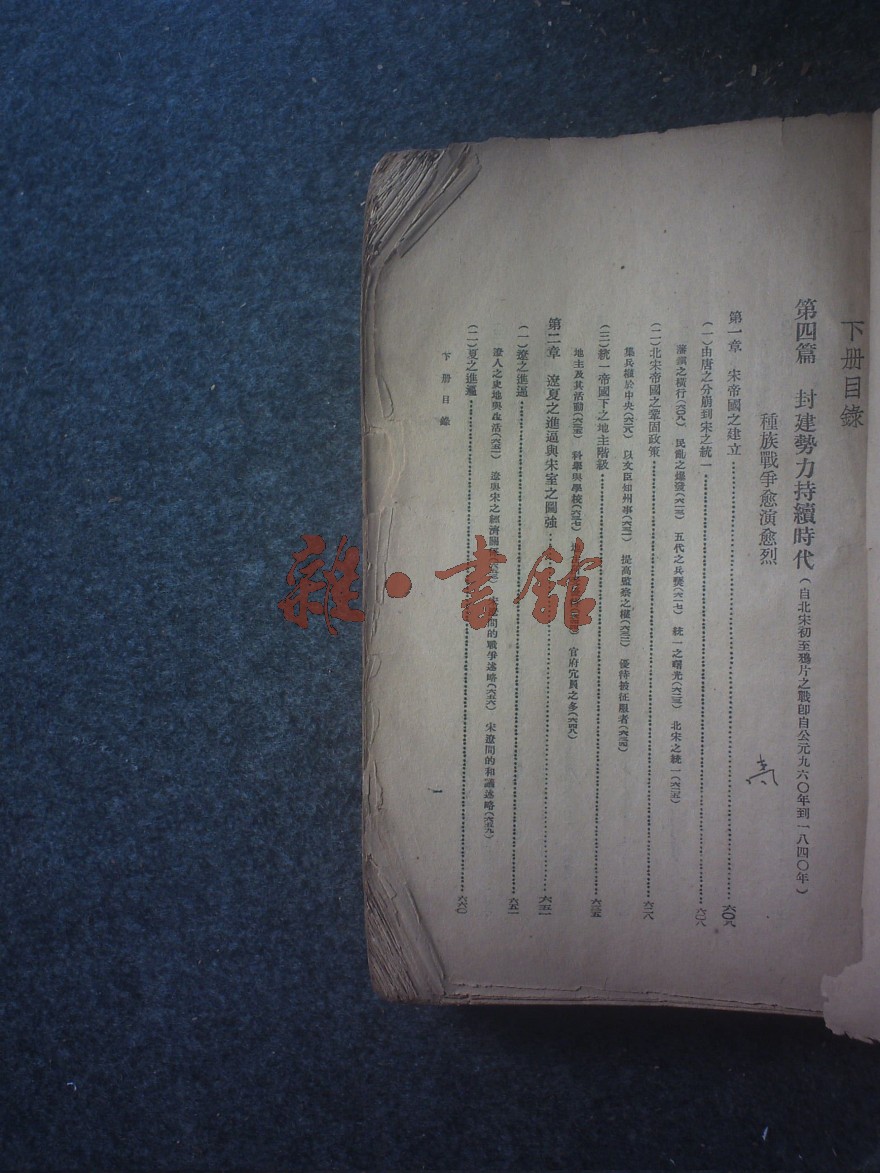 下册目錄
第四篇 封建勢力持續時代(自北宋初至鴉片之戰卽自公元九六〇年到一八四〇年)
種族戰爭愈演愈烈
第一章 宋帝國之建立……六〇九
(一)由唐之分崩到宋之統一……六〇八
藩鎮之橫行(六〇九) 民亂之爆發(六一三) 五代之兵變(六一七) 統一之曙光(六二三) 北宋之統一(六二五)
(二)北宋帝國之鞏固政策……六二八
集兵權於中央(六二八) 以文臣知州事(六三一) 提高監察之權(六三二) 優待被征服者(六三四)
(三)統一帝國下之地主階級……六三五
地主及其活動(六三五) 科舉與學校(六三七) 官府冗員之多(六四八)
第二章 遼夏之進逼與宋室之圖強……六五一
(一)遼之進逼……六五一
遼人之史地與生活(六五一) 遼與宋之經濟關係 間的戰爭述略(六五六) 宋遼間的和議述略(六五九)
(二)夏之進逼……六六〇
下册目錄
一
雜·書館